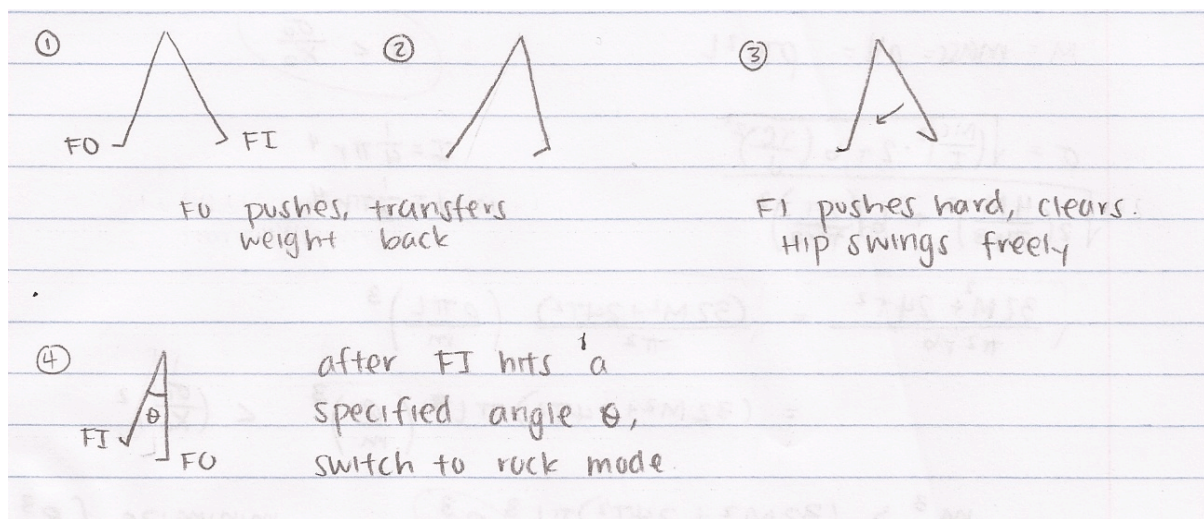 ①
②
③
FO
FI
FO pushes, transfers
weight back
FI pushes hard, clears.
Hip swings freely
④
FI
θ
FO
after FI hits a
specified angle θ,
switch to rock mode.